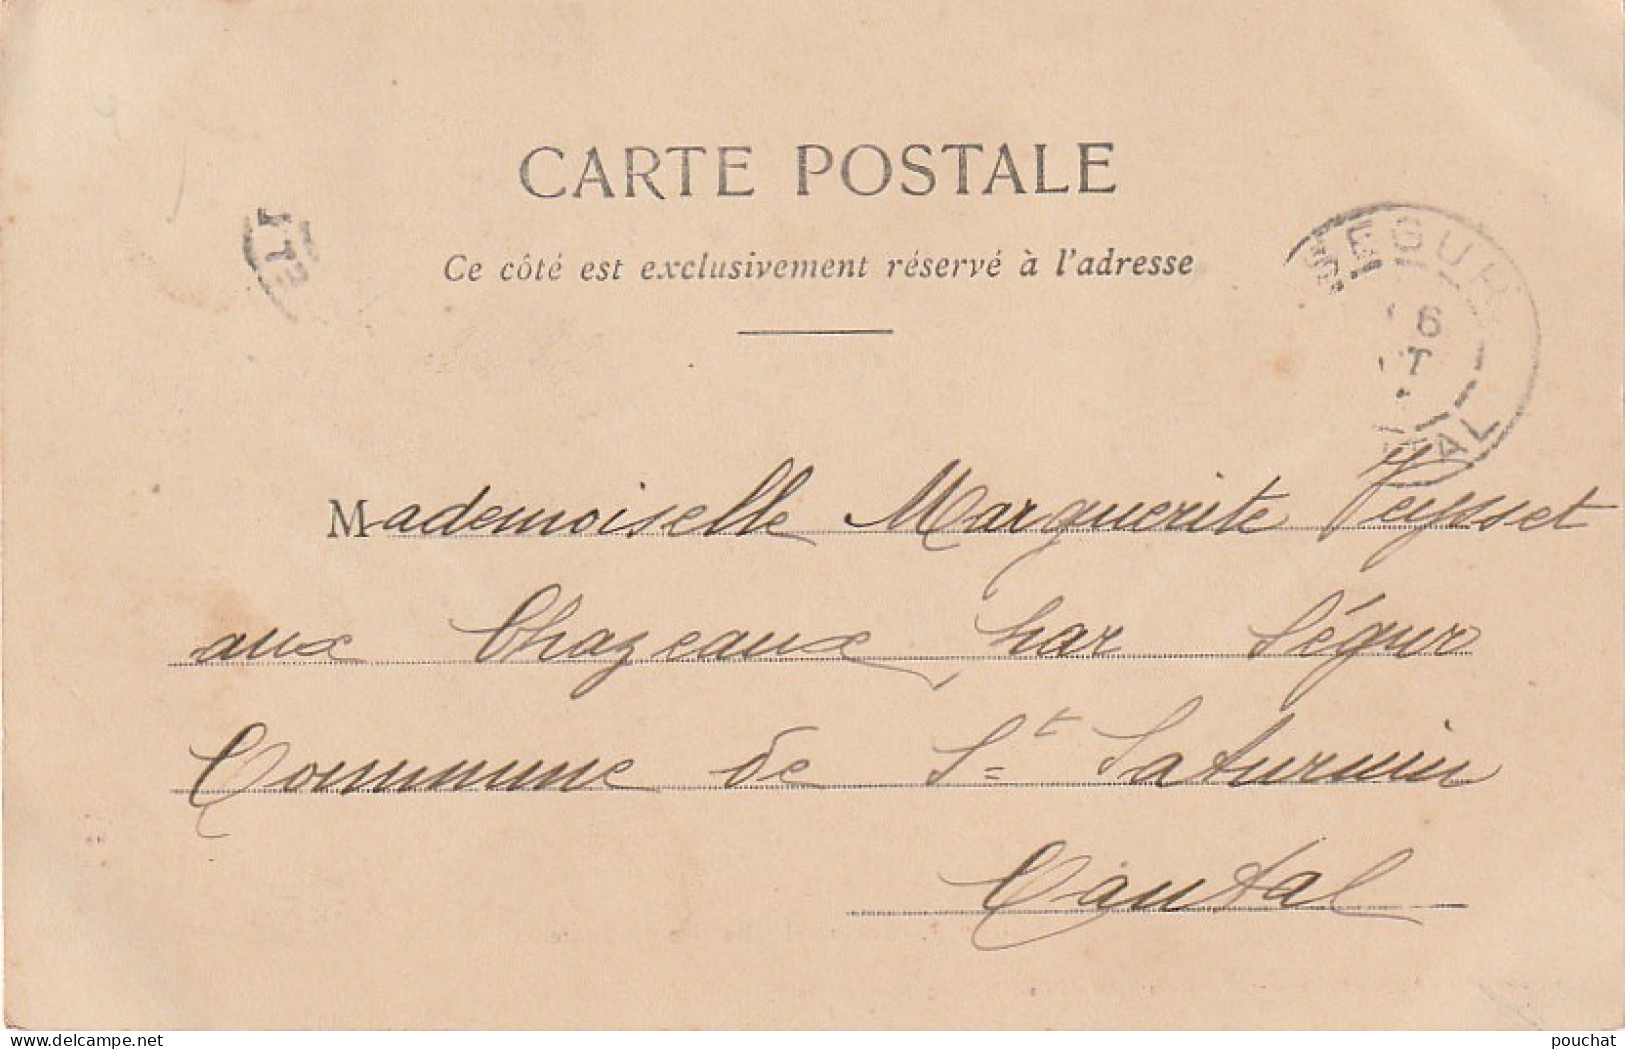 CARTE POSTALE
Ce côté est exclusivement réservé à l'adresse
SEGUR
6
AL
Mademoiselle Marguerite Veysset
aux Chazeaux, par Ségur
Commune de St Saturnin
Cantal
delcampe.net
pouchat